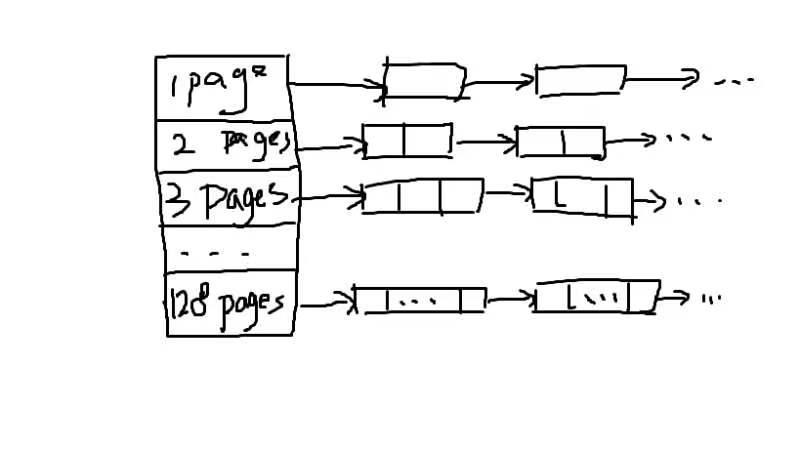 1 page ...
2 pages ...
3 pages ...
...
128 pages ... ... ...